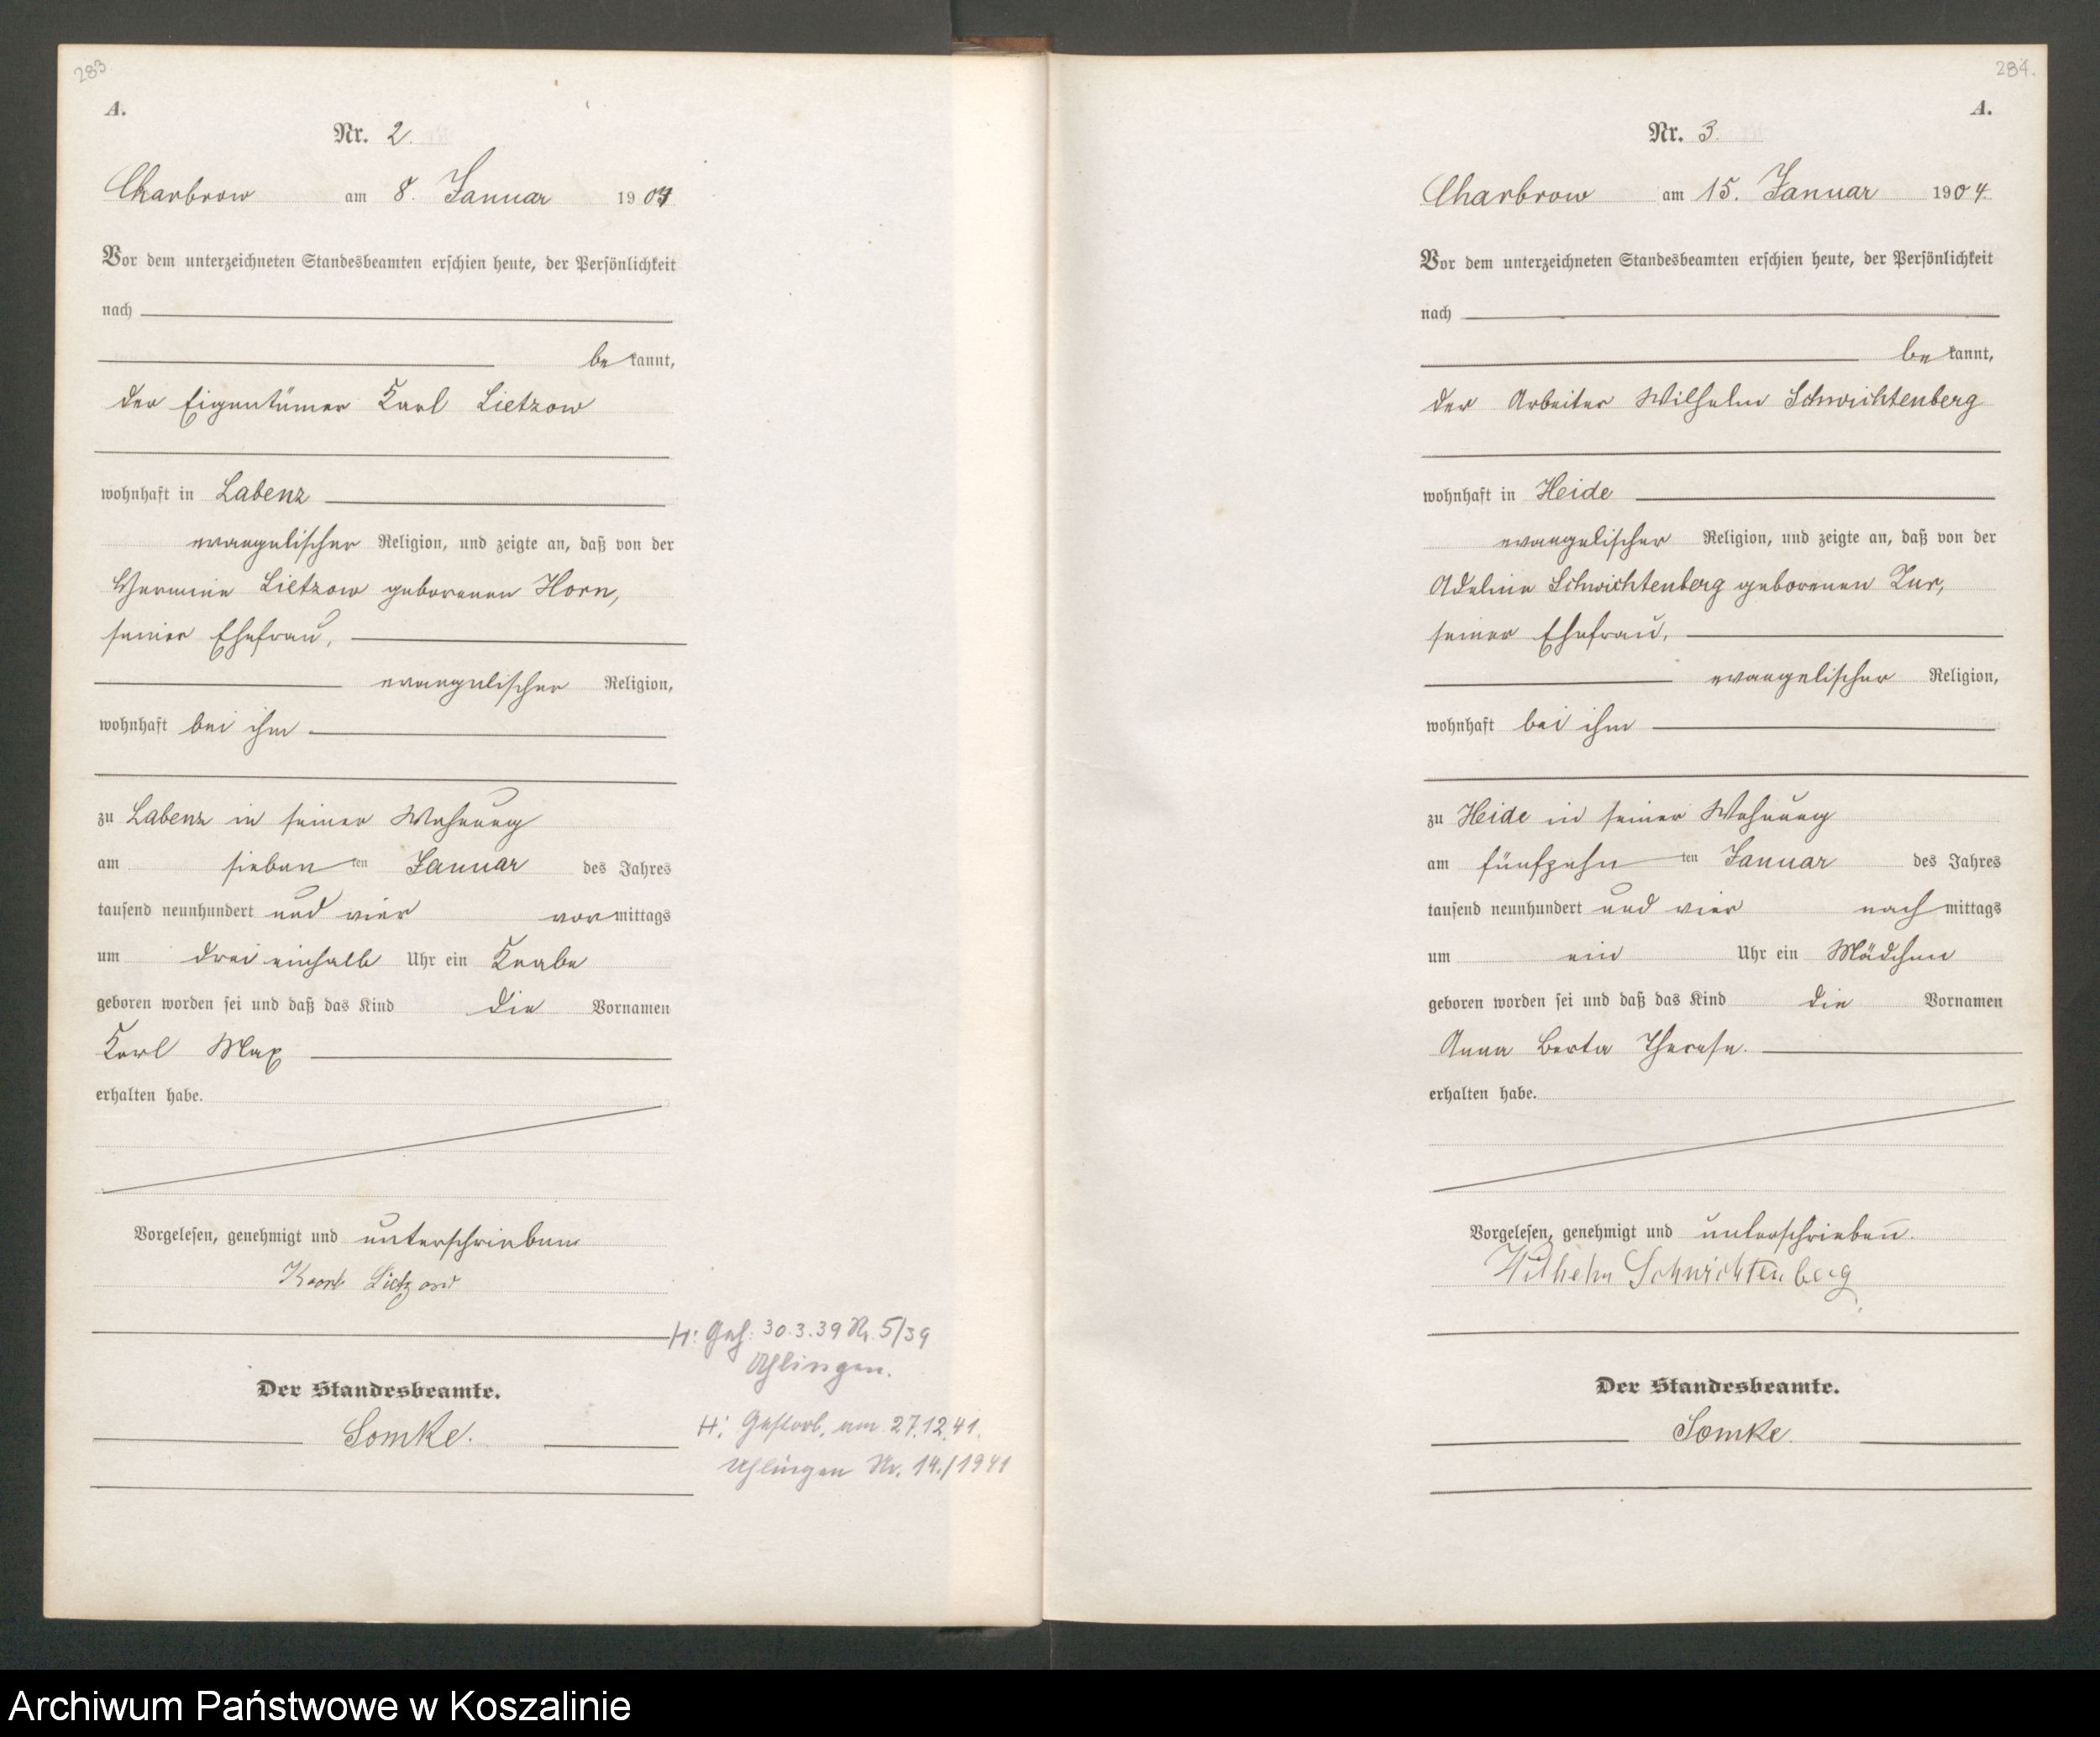 283
A.
Nr. 2.
Charbrow am 8. Januar 1904
Vor dem unterzeichneten Standesbeamten erschien heute, der Persönlichkeit
nach
be kannt,
der Eigentümer Karl Lietzow
wohnhaft in Labenz
evangelischer Religion, und zeigte an, daß von der
Hermine Lietzow geborenen Horn,
seiner Ehefrau,
evangelischer Religion,
wohnhaft bei ihm
zu Labenz in seiner Wohnung
am sieben ten Januar des Jahres
tausend neunhundert und vier vor mittags
um drei einhalb Uhr ein Knabe
geboren worden sei und daß das Kind die Vornamen
Karl Max
erhalten habe.
Vorgelesen, genehmigt und unterschrieben
Karl Lietzow
H: Geh: 30.3.39 Nr. 5/39
Uhlingen.
Der Standesbeamte.
Somke.
H: Gestorb. am 27.12.41.
Uhlingen Nr. 14./1941
284.
A.
Nr. 3.
Charbrow am 15. Januar 1904.
Vor dem unterzeichneten Standesbeamten erschien heute, der Persönlichkeit
nach
be kannt,
der Arbeiter Wilhelm Schwichtenberg
wohnhaft in Heide
evangelischer Religion, und zeigte an, daß von der
Adeline Schwichtenberg geborenen Zur,
seiner Ehefrau,
evangelischer Religion,
wohnhaft bei ihm
zu Heide in seiner Wohnung
am fünfzehn ten Januar des Jahres
tausend neunhundert und vier nach mittags
um ein Uhr ein Mädchen
geboren worden sei und daß das Kind die Vornamen
Anna Berta Therese.
erhalten habe.
Vorgelesen, genehmigt und unterschrieben.
Wilhelm Schwichtenberg
Der Standesbeamte.
Somke.
Archiwum Państwowe w Koszalinie